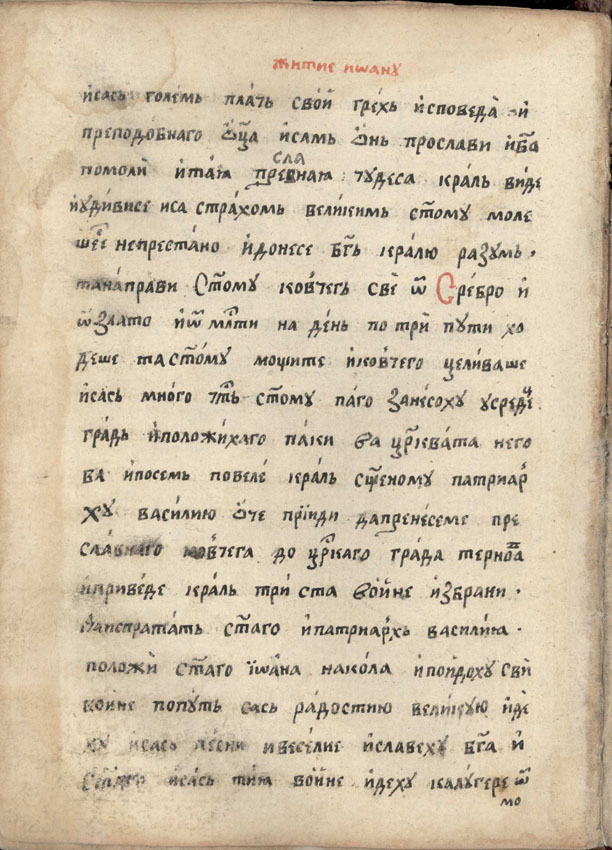 житие иѡану
и҆сась големь плачь свои́ грѐхь и҆споведа и҆
преподо́бнаго ѻ҆ц҃а и҆самь ѻ҆нь прослави и҆б҃га
помоли̑ и҆таꙗ҆ пресла внаю чудеса краль виде
и҆удивисе иса страхомь великимь ст҃ому моле
непреста́но и҆донесе бг҃ь кралю разумь·
тана́прави ст҃ому ковчегь све ѿ сре́бро и҆
ѿзлато и҆ѿ мл҃ти на день по трѝ пути хо
деше таст҃о́му мощите и҆ковчего целиваше
и҆сась много ст҃ому паго зане́соху усредец
градь и҆положи́хаго паки ва цр҃квата него
ва и҆посемь повелѐ краль сщ҃еному патриар
ху василию ѻ҆че прїиди да́пренесеме пре
сла́внаго ковчега до цр҃каго града тернова
и҆приве́де краль трѝ ста во́ине и҆збрани·
да́испратать ст҃аго и҆патриархь василиꙗ·
положѝ ст҃аго їѡа́на накола и҆пои́доху сви̑
воине попу́ть сась ра́достию великую и҆де
ху и҆сась песни и весе́лие и҆славеху бг҃а и҆
и҆сась тиꙗ во́ине и҆деху калу́гере ѿ
мо